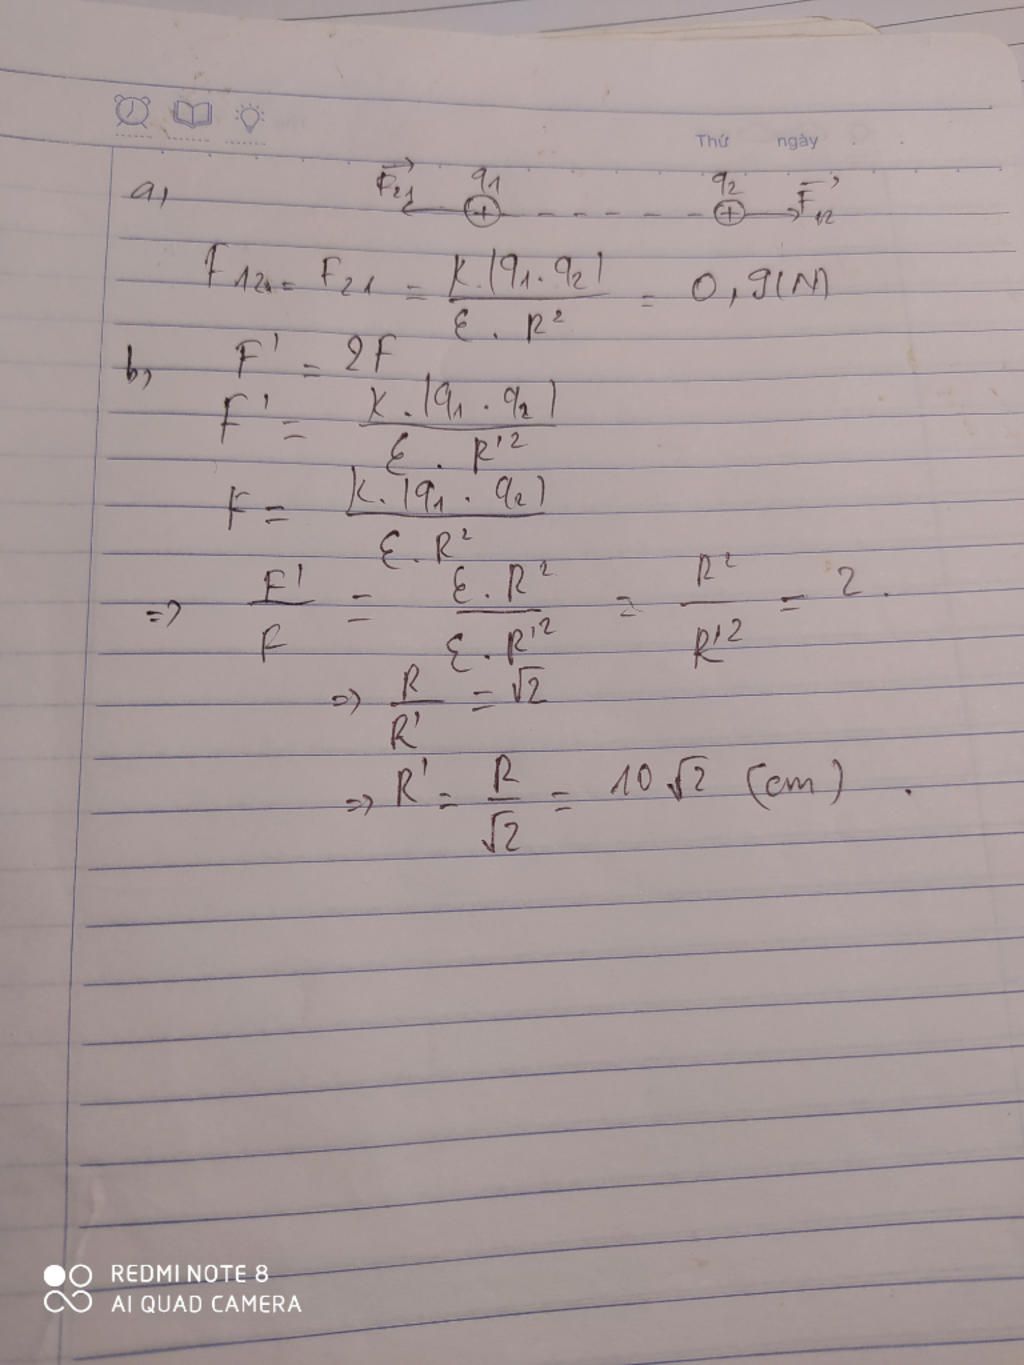 Thứ ngày
a, F₂₁ q₁ q₂ F₁₂
+ +
F₁₂ = F₂₁ = K.|q₁.q₂| / ε.R² = 0,9(N)
b, F' = 2F
F' = K.|q₁.q₂| / ε.R'²
F = K.|q₁.q₂| / ε.R²
=> F'/F = ε.R² / ε.R'² = R²/R'² = 2.
=> R/R' = √2
=> R' = R/√2 = 10√2 (cm).
REDMI NOTE 8
AI QUAD CAMERA